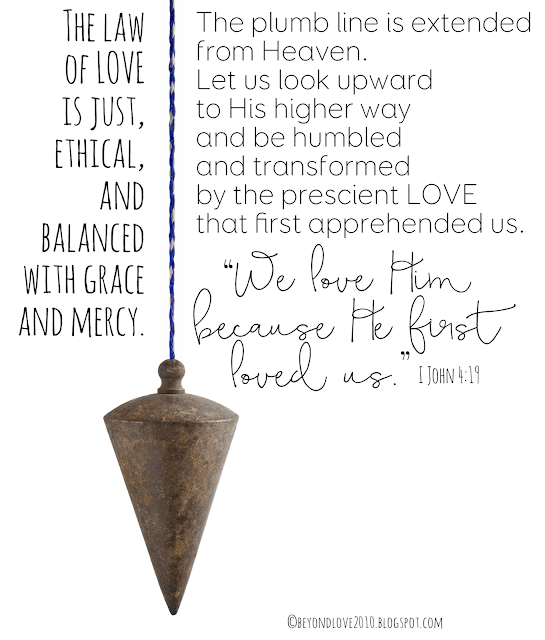 The law
of LOVE
is just,
ethical,
and
balanced
with grace
and mercy.
The plumb line is extended
from Heaven.
Let us look upward
to His higher way
and be humbled
and transformed
by the prescient LOVE
that first apprehended us.
“We love Him
because He first
loved us.” I John 4:19
©beyondlove2010.blogspot.com